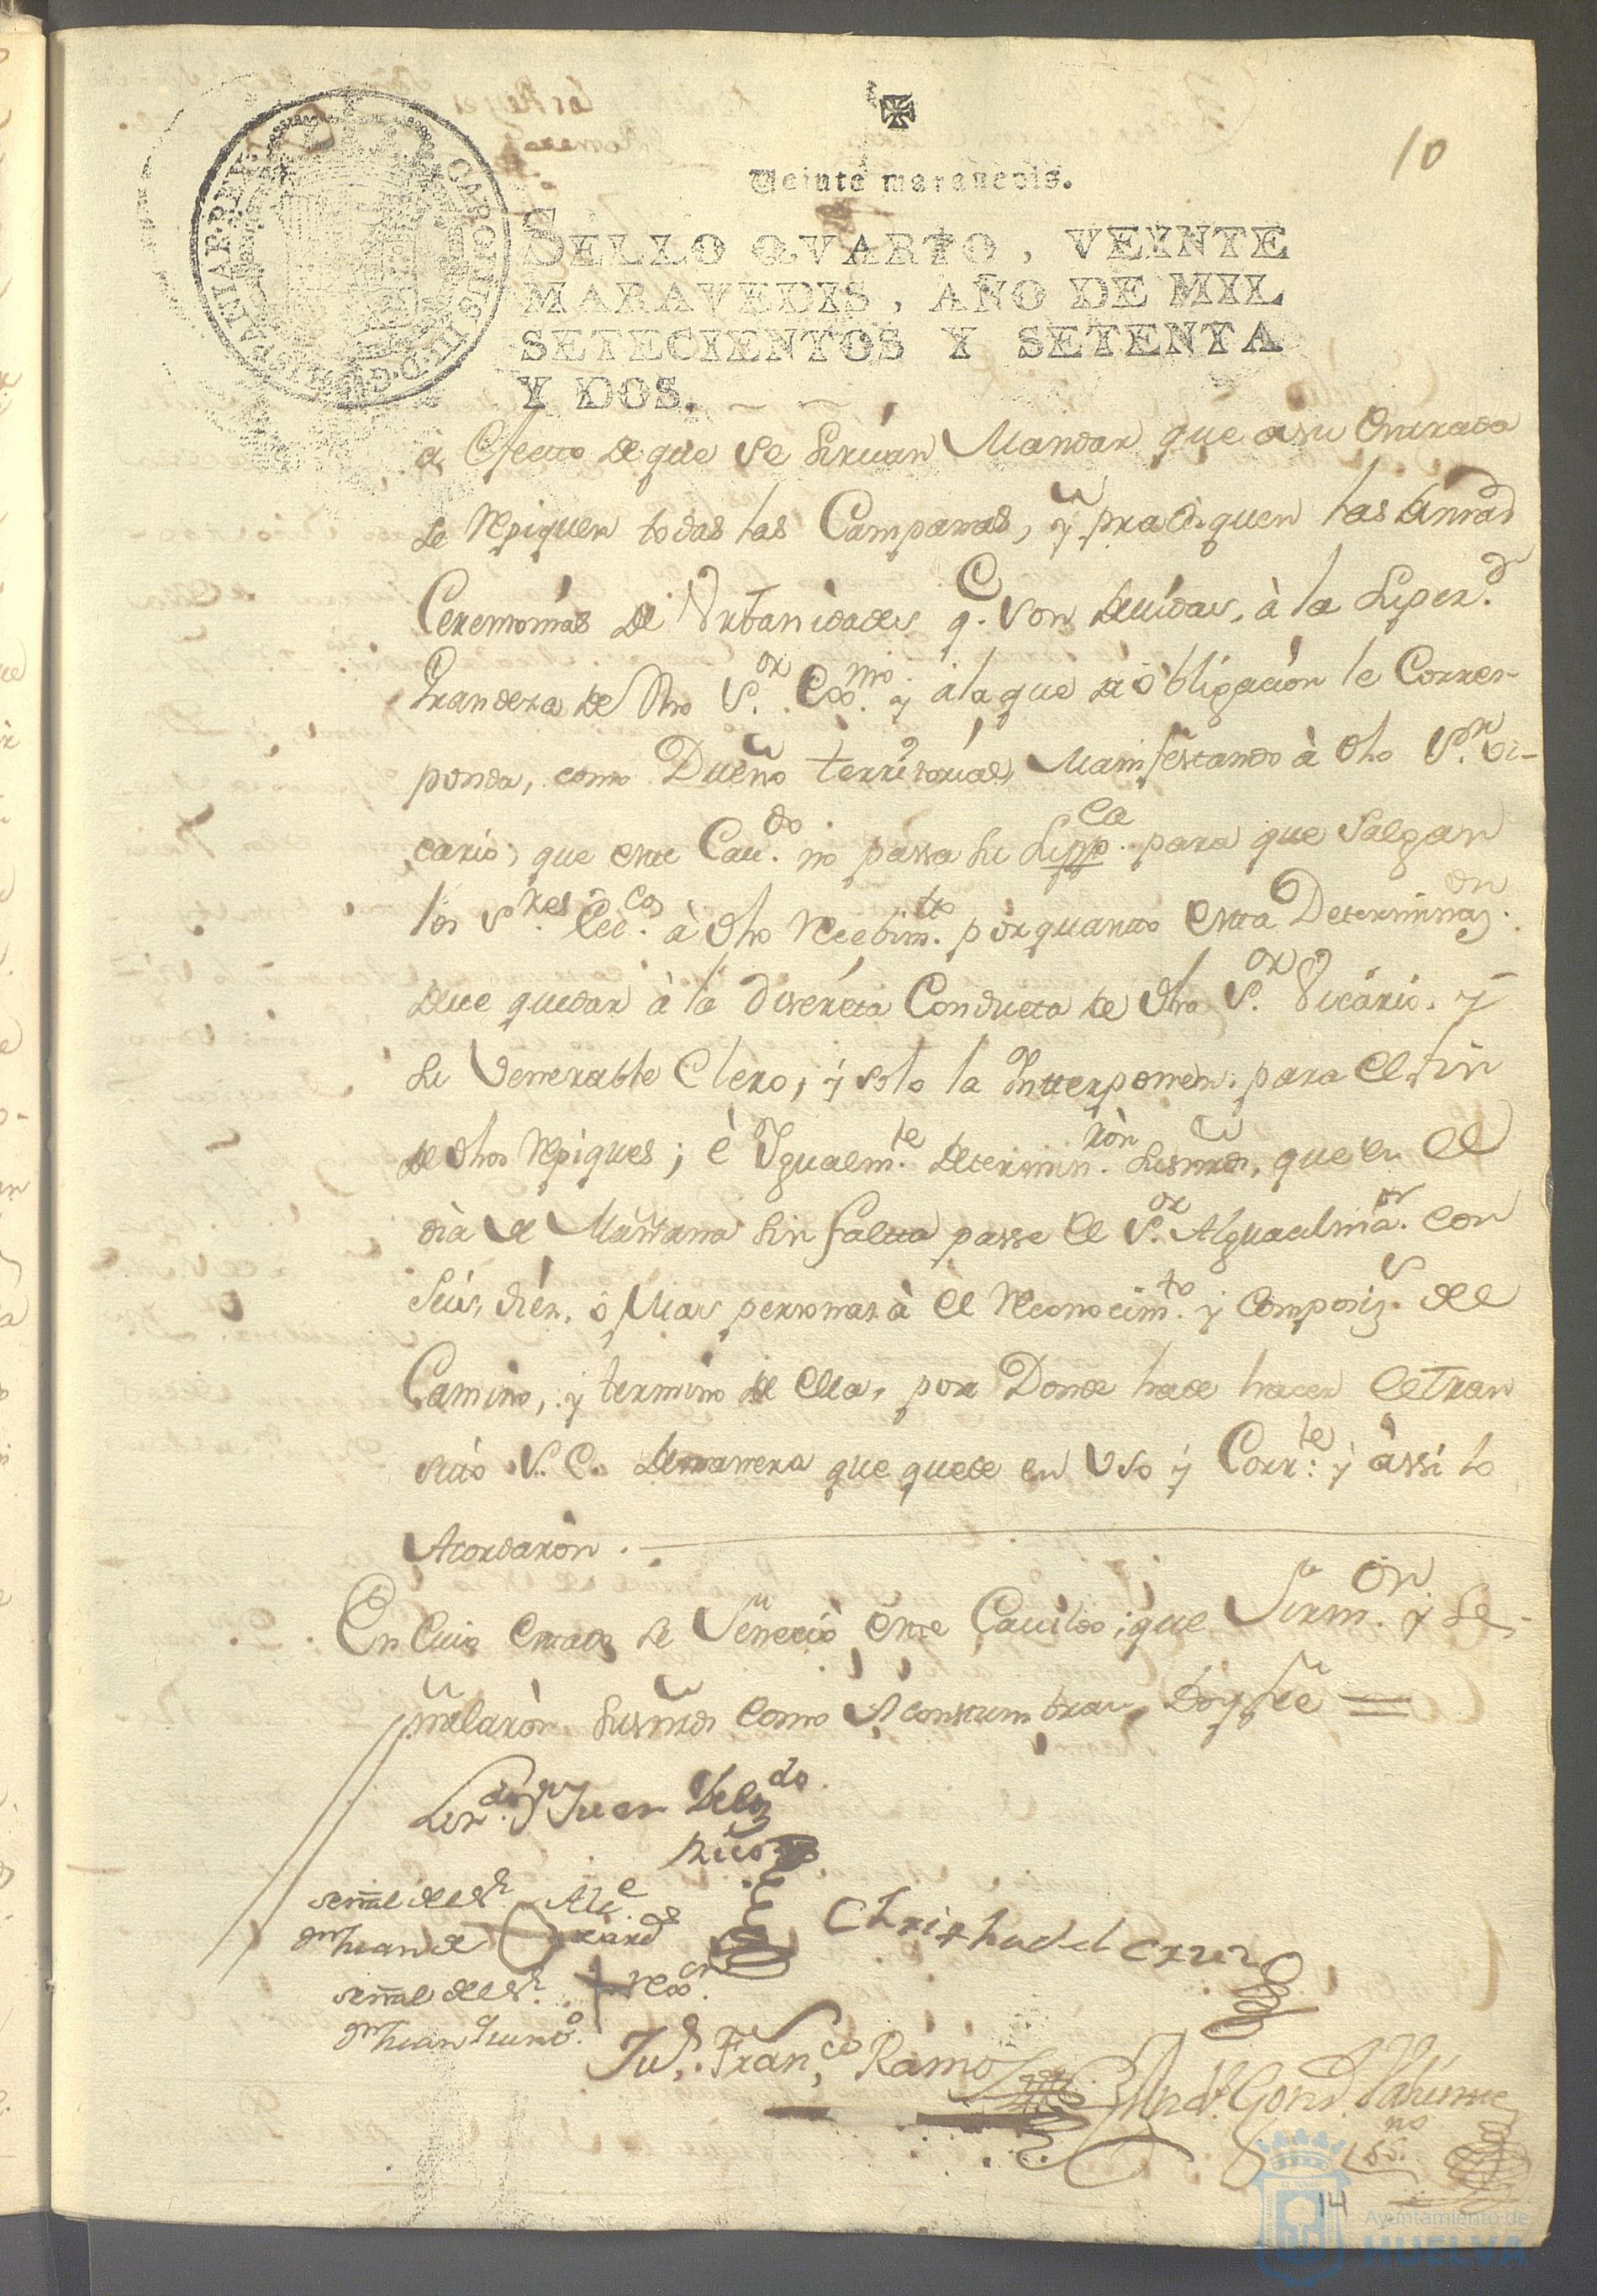 10
Veinte maravedis.
SELLO QVARTO, VEINTE
MARAVEDIS, AÑO DE MIL
SETECIENTOS Y SETENTA
Y DOS.
à Efecto de que se sirvan Mandar que a su Entrada
se Repiquen todas las Campanas, y practiquen las
Ceremonias de Vrbanidades q.e son devidas, à la Super.or
Grandeza de Nro S.or Exmo. y à la que de obligacion le Corres-
ponda, como Dueño territorial, Manifestando à dho S.or Vi-
cario, que este Cav.do no passa su Supp.ca para que salgan
los S.res Ecc.cos à dho Recebim.to por quanto esta Determinaz.on
deve quedar à la discreta Conducta de dho S.or Vicario. y
su Venerable Clero, y solo la Interponen. para el fin
de dhos Repiques; è Igualm.te determin.ron susmrds, que en el
dia de Mañana sin falta passe el S.or Alguacil ma.or con
Seis, diez, ò Mas personas à el Reconocim.to y Composiz.n del
Camino, y termino de ella, por Donde hade hacer el Tran
sito S. E. demanera que quede en Vso y Corr.te y assi lo
Acordaron.
En Cuio estado se Feneciò este Cavildo, que Firm.on y se-
ñalaron susmrds como Acostumbran, Doy fee =
Liz.do Dn Juan Delg.do
Rico
señal del Sr Alc.e
Dn Juan de
señal del Sr. Rexor.
Dn Juan
Christhoval Cruz
Ju. Fran.co Ramos
And.s Gonz.
ss.no
14
Ayuntamiento de
HUELVA